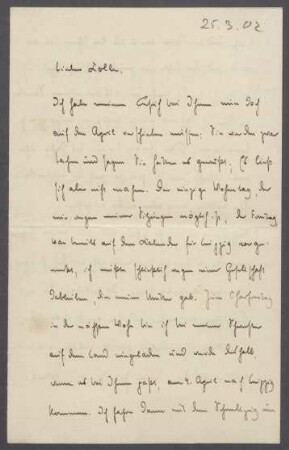 25.3.02
Lieber Kolle,
Ich habe meinen Besuch bei Ihnen nun doch
auf den April verschieben müssen. Sie werden zwar
lachen und sagen Sie hätten es gewußt. Es ließ
sich aber nicht machen. Der einzige Wochentag, der
mir wegen meiner Sitzungen möglich ist, der Freitag
war bereits auf dem Kalender für Leipzig vorge-
merkt, ich mußte schließlich wegen einer Gesellschaft
dableiben, die meine Mutter gab. Zum Charfreitag
in der nächsten Woche bin ich bei meiner Schwester
auf dem Land eingeladen und werde deshalb,
wenn es bei Ihnen paßt, am 4. April nach Leipzig
kommen. Ich fahre dann mit dem Schnellzug um